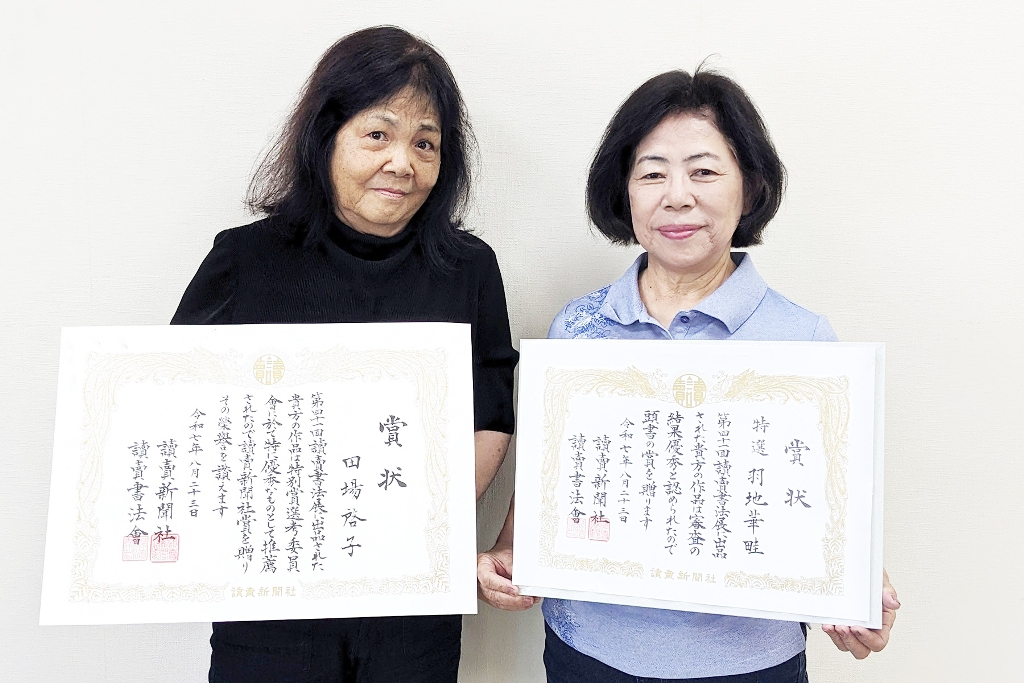 賞状
田場啓子
第四十一回讀賣書法展に出品された
貴方の作品は特別賞選考委員
會に於て特に優秀なものとして推薦
されたので讀賣新聞社賞を贈り
その榮譽を讃えます
令和七年八月二十三日
讀賣新聞社
讀賣書法會
讀賣新聞社
賞状
特選 羽地華畦
第四十一回讀賣書法展に出品
された貴方の作品は審査の
結果優秀と認められたので
頭書の賞を贈ります
令和七年八月二十三日
讀賣新聞社
讀賣書法會
讀賣新聞社